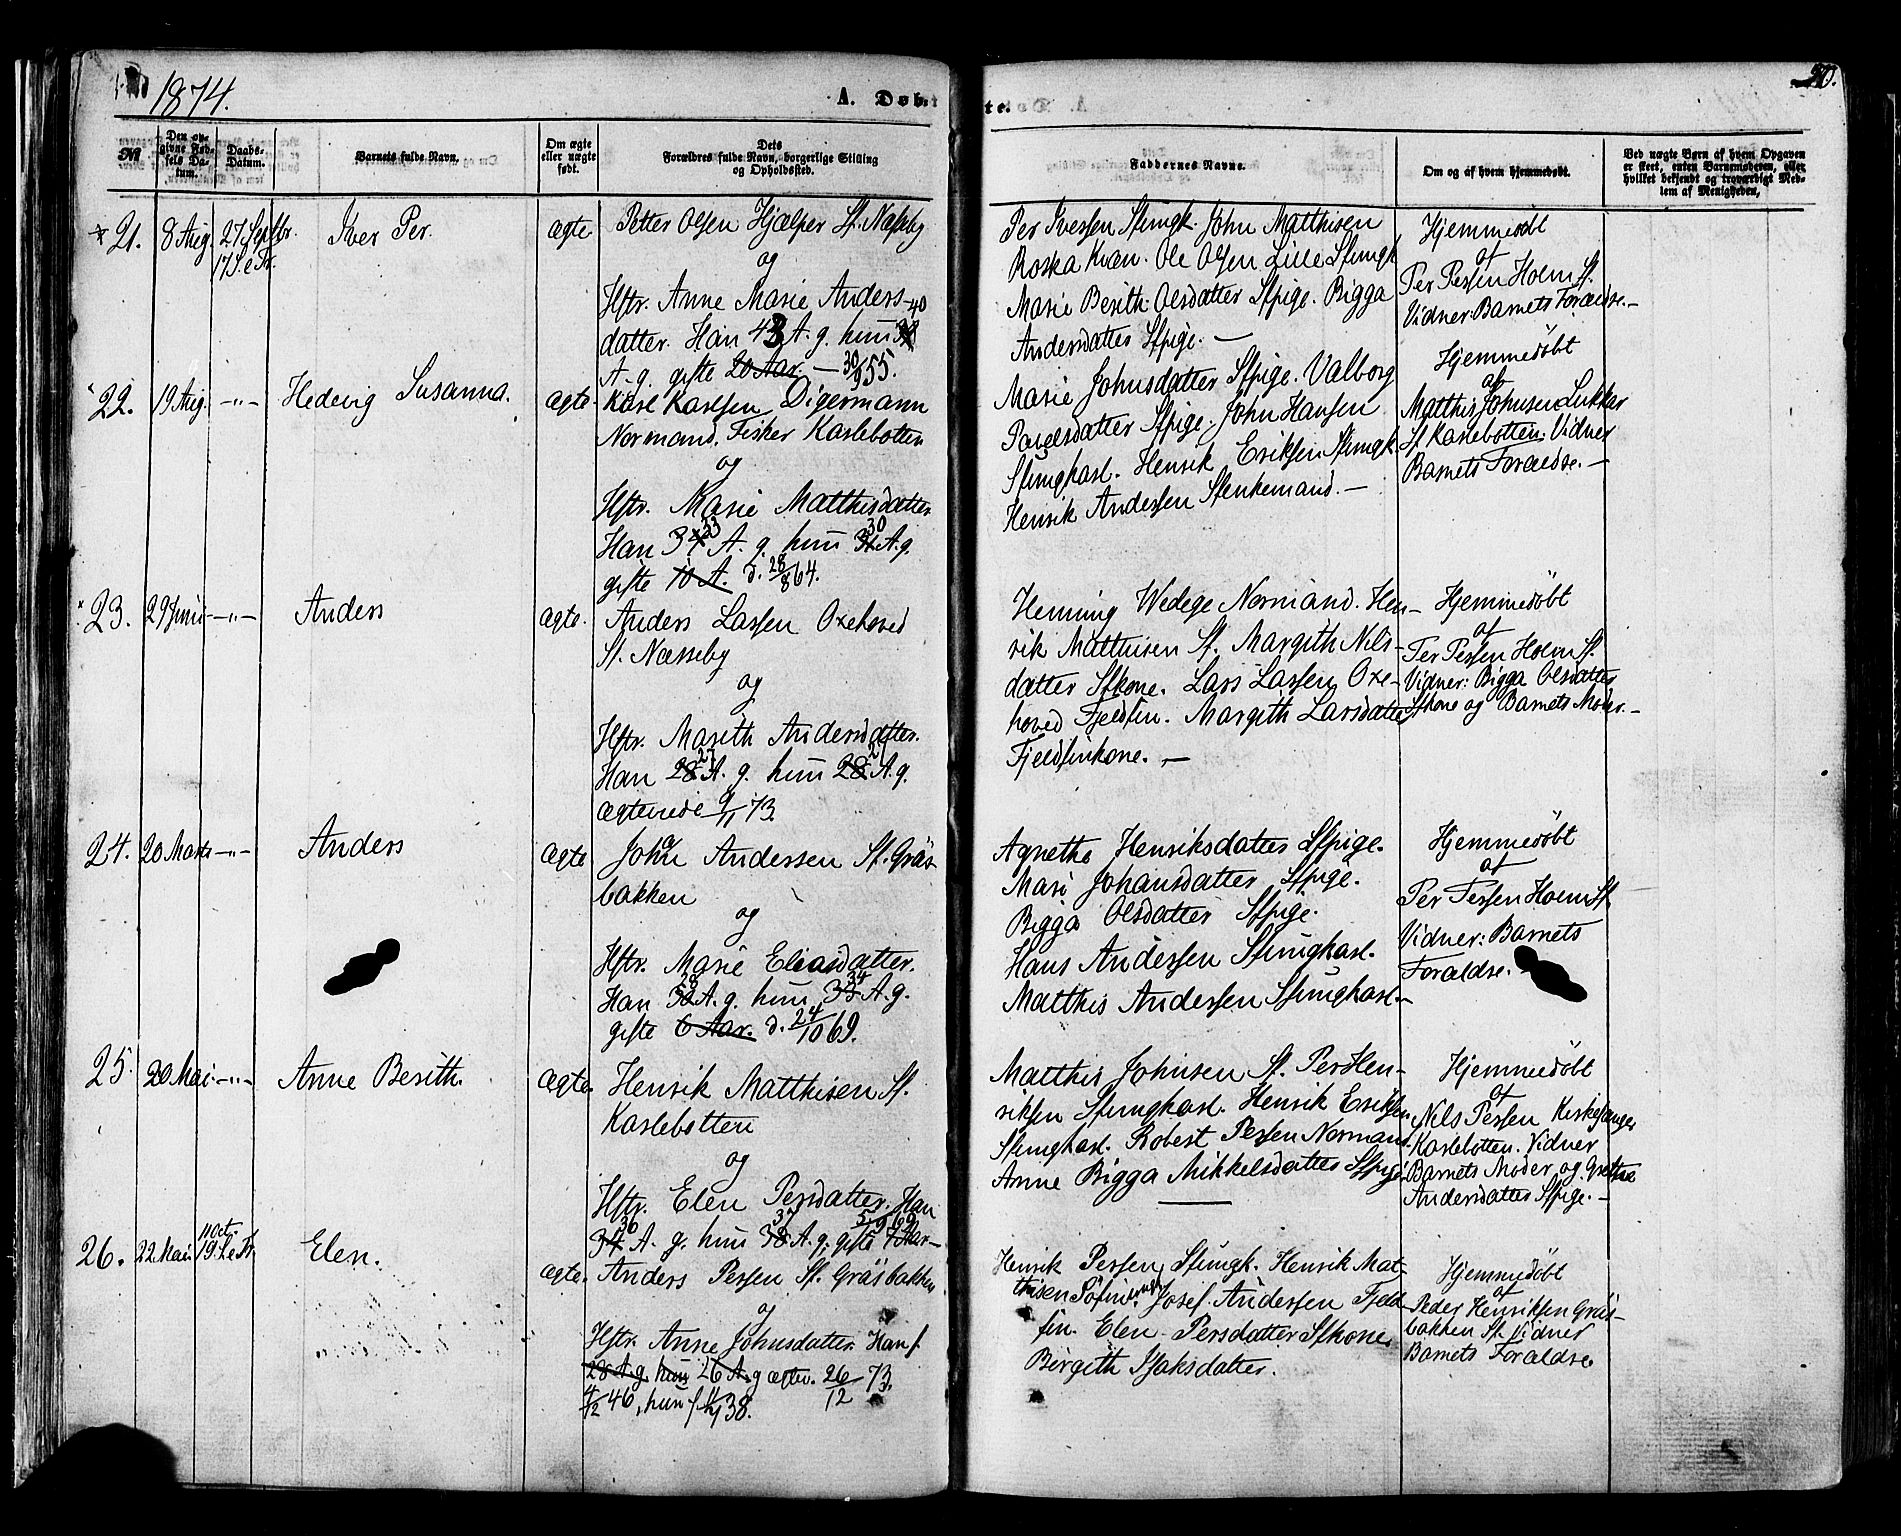 1874.
A. Døbte.
20.
№
Den opgivne Fødsels Datum.
Daabs-Datum.
Barnets fulde Navn.
Om ægte eller uægte født.
Dets Forældres fulde Navn, borgerlige Stilling og Opholdssted.
Faddernes Navne.
Om og af hvem hjemmedøbt.
Ved uægte Børn af hvem Opgaven er skeet, enten Barnemoderen, eller hvilket bekjendt og troværdigt Medlem af Menigheden,
21. 8 Aug. 27. Septbr.
17 S. e Tr.
Iver Per.
ægte
Petter Olsen Hjælper Sf. Næsseby
og
Hstr. Anne Marie Anders-
datter. Han 43 A. g. hun 40
A. g. gifte 20 Aar. — 30/9 55.
Per Iversen Sfungk. John Matthisen
Roska Kvæn. Ole Olsen Lille Sfungk
Marie Berith Olsdatter Sfpige. Bigga
Andersdatter Sfpige. —
Hjemmedøbt
af
Per Persen Holm Sf.
Vidner: Barnets Forældre. —
22. 19 Aug. —„—
Hedevig Susanna.
ægte.
Karl Karlsen Digermann
Normand. Fisker Karlebotten
og
Hstr. Marie Matthisdatter
Han 34 33 A. g. hun 31 30 A. g.
gifte 10 A. d. 28/8 64.
Marie Johnsdatter Sfpige. Valborg
Povelsdatter Sfpige. John Hansen
Sfungkarl. Henrik Eriksen Sfungk.
Henrik Andersen Sfenkemand. —
Hjemmedøbt
af
Matthis Johnsen Lukkar
Sf. Karlebotten. Vidner
Barnets Forældre. —
23. 29 Juni —„—
Anders
ægte.
Anders Larsen Oxehoved
Sf. Næsseby
og
Hstr. Marith Andersdatter.
Han 28 27 A. g. hun 28 27 A. g.
ægteviede 9/11 73.
Henning Wedege Normand. Hen-
rik Matthisen Sf. Margith Nils-
datter Sfkone. Lars Larsen Oxe-
hoved Fjeldfin. Margith Larsdatter
Fjeldfinkone. —
Hjemmedøbt
af
Per Persen Holm Sf.
Vidner: Bigga Olsdatter
Sfkone og Barnets Moder. —
24. 20 Marts —„—
Anders
ægte
John Andersen Sf. Gräs-
bakken
og
Hstr. Marie Eliasdatter.
Han A. g. hun 33 34 A. g.
gifte 6 Aar. d. 24/10 69.
Agnethe Henriksdatter Sfpige.
Mari Johansdatter Sfpige.
Bigga Olsdatter Sfpige.
Hans Andersen Sfungkarl.
Matthis Andersen Sfungkarl. —
Hjemmedøbt
af
Per Persen Holm Sf.
Vidner: Barnets
Forældre.
25. 20 Mai. —„—
Anne Berith.
ægte.
Henrik Matthisen Sf.
Karlebotten
og
Hstr. Elen Persdatter. Han
34 36 A. g. hun 38 37 A. g. gifte 5/9 69
Matthis Johnsen Sf. Per Hen-
riksen Sfungkarl. Henrik Eriksen
Sfungkarl. Robert Persen Normand.
Anne Bigga Mikkelsdatter Sfpige
Hjemmedøbt
af
Nils Persen Kirkesanger
Karlebotten. Vidner
Barnets Moder og Grethe
Andersdatter Sfpige. —
26. 22 Mai 11 Oct.
19. S. e Tr.
Elen.
ægte.
Anders Persen Sf. Gräsbakken
og
Hstr. Anne Johnsdatter. Han f.
28 A. g. hun 26 A. g ægtev. 26/12 73.
4/12 46, hun f. 38.
Henrik Persen Sfungk. Henrik Mat-
thisen Josef Andersen Fjeld-
fin. Elen Persdatter Sfkone
Birgith Isaksdatter.
Hjemmedøbt
af
Peder Henriksen Gräs-
bakken Sf. Vidner
Barnets Forældre